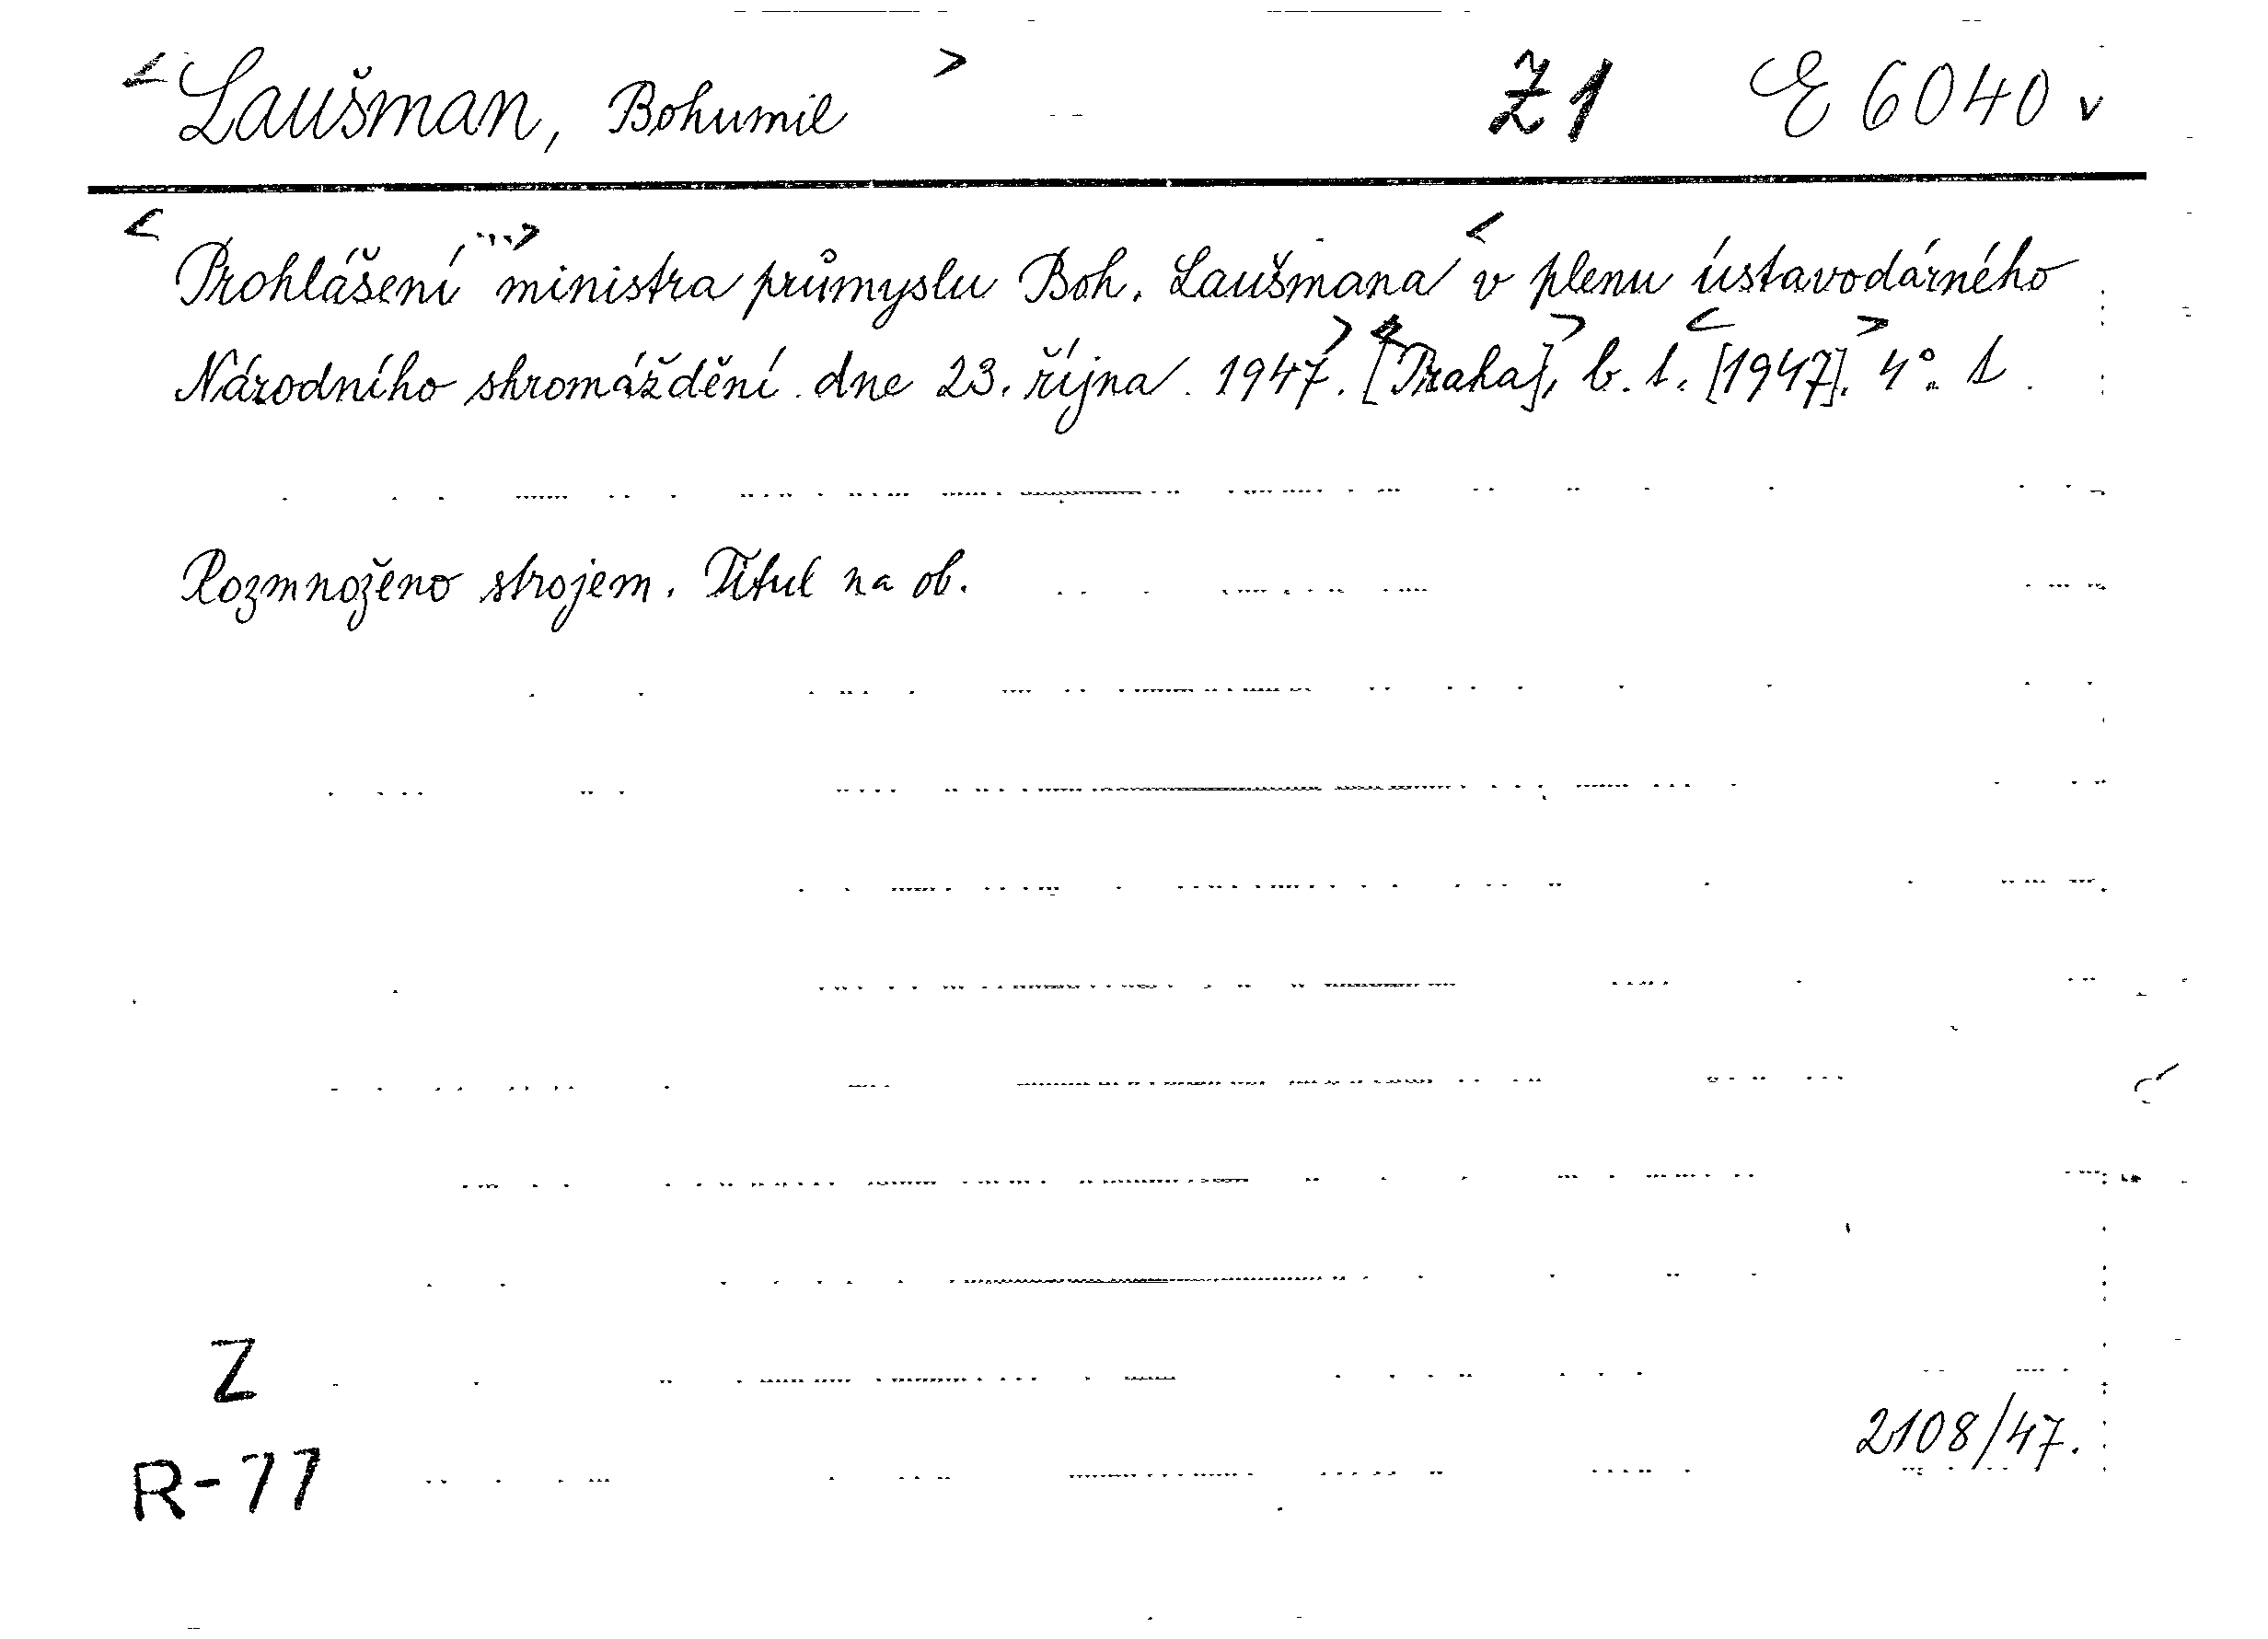 < Laušman, Bohumil > Ž1 E 6040 v
< Prohlášení ...> ministra průmyslu Boh. Laušmana < v plenu ústavodárného
Národního shromáždění dne 23. října 1947 >. [Praha], > b. t. < [1947]. > 4°.
Rozmnoženo strojem. Titul na ob.
Z
2108/47.
R-77